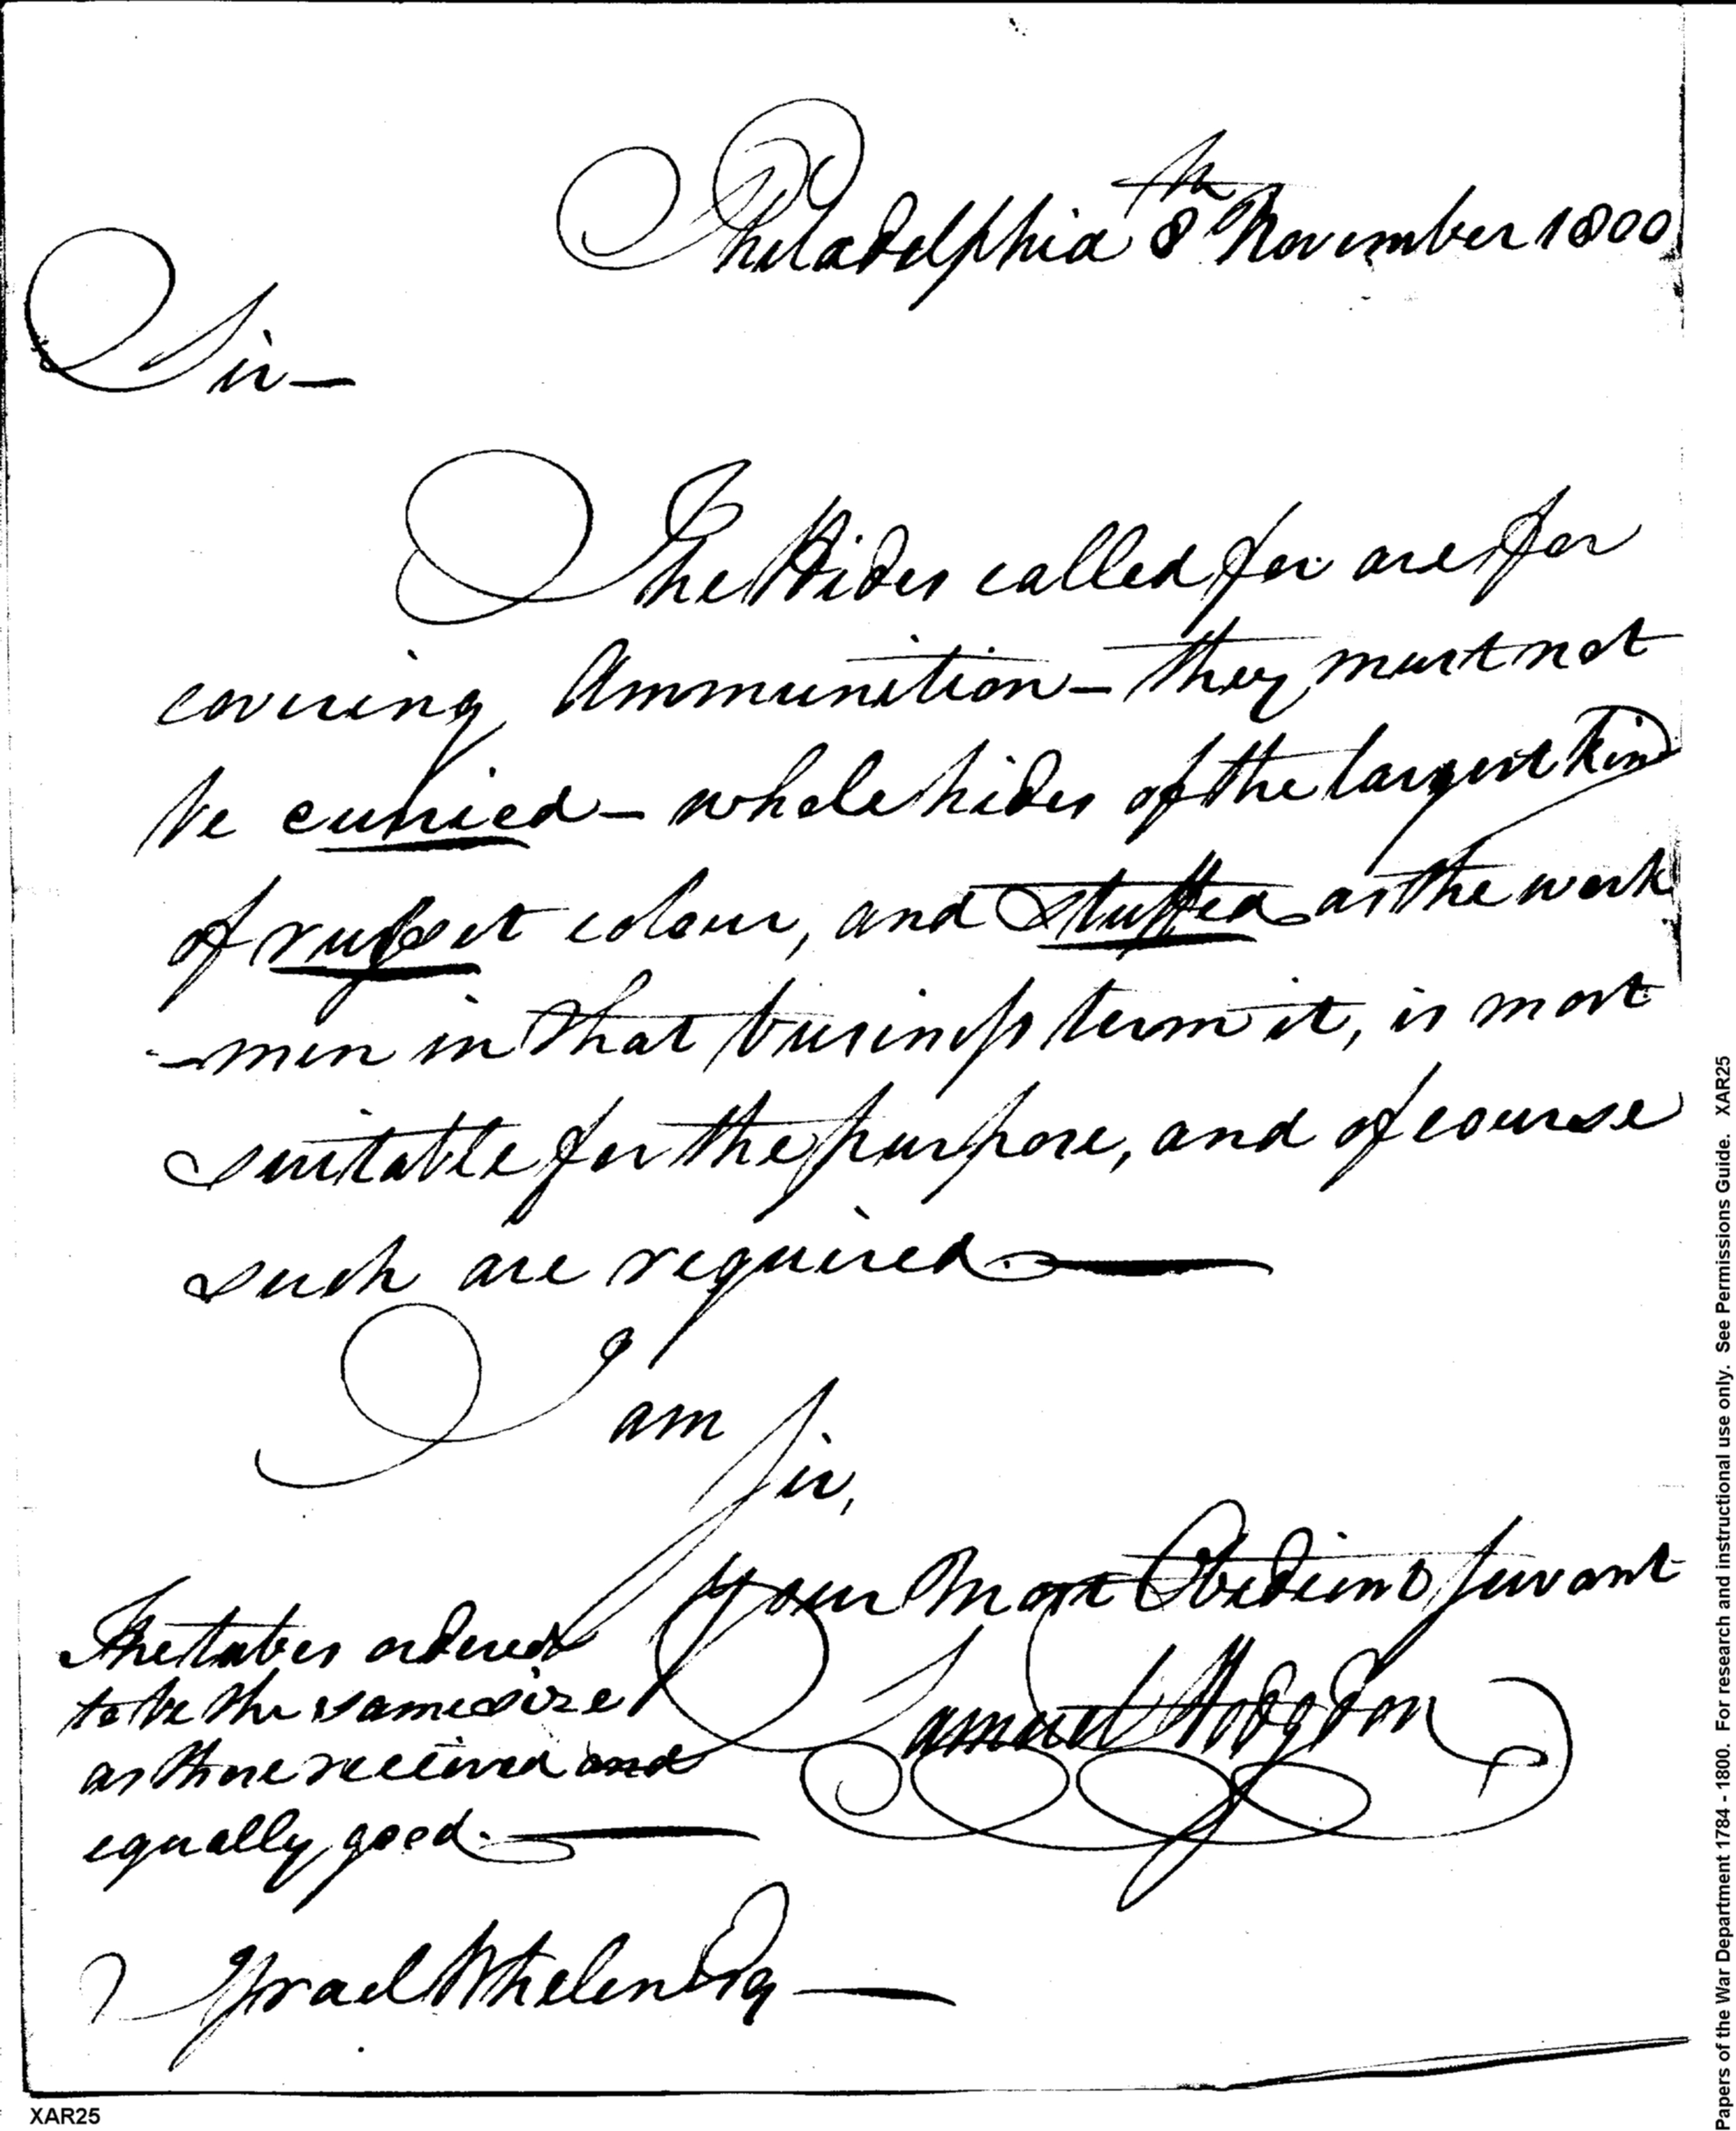 Philadelphia 8th November 1800
Sir—
The Hides called for are for
covering Ammunition— they must not
be curried— whole hides of the largest kind
of russet colour, and stuffed as the work
-men in that business term it, is most
suitable for the purpose, and of course
such are required.—
I am
Sir,
Your Most Obedient Servant
Samuel Hodgdon
The tubes ordered
to be the same size
as those received and
equally good.—
Israel Whelen Esq—
XAR25
Papers of the War Department 1784 - 1800. For research and instructional use only. See Permissions Guide. XAR25